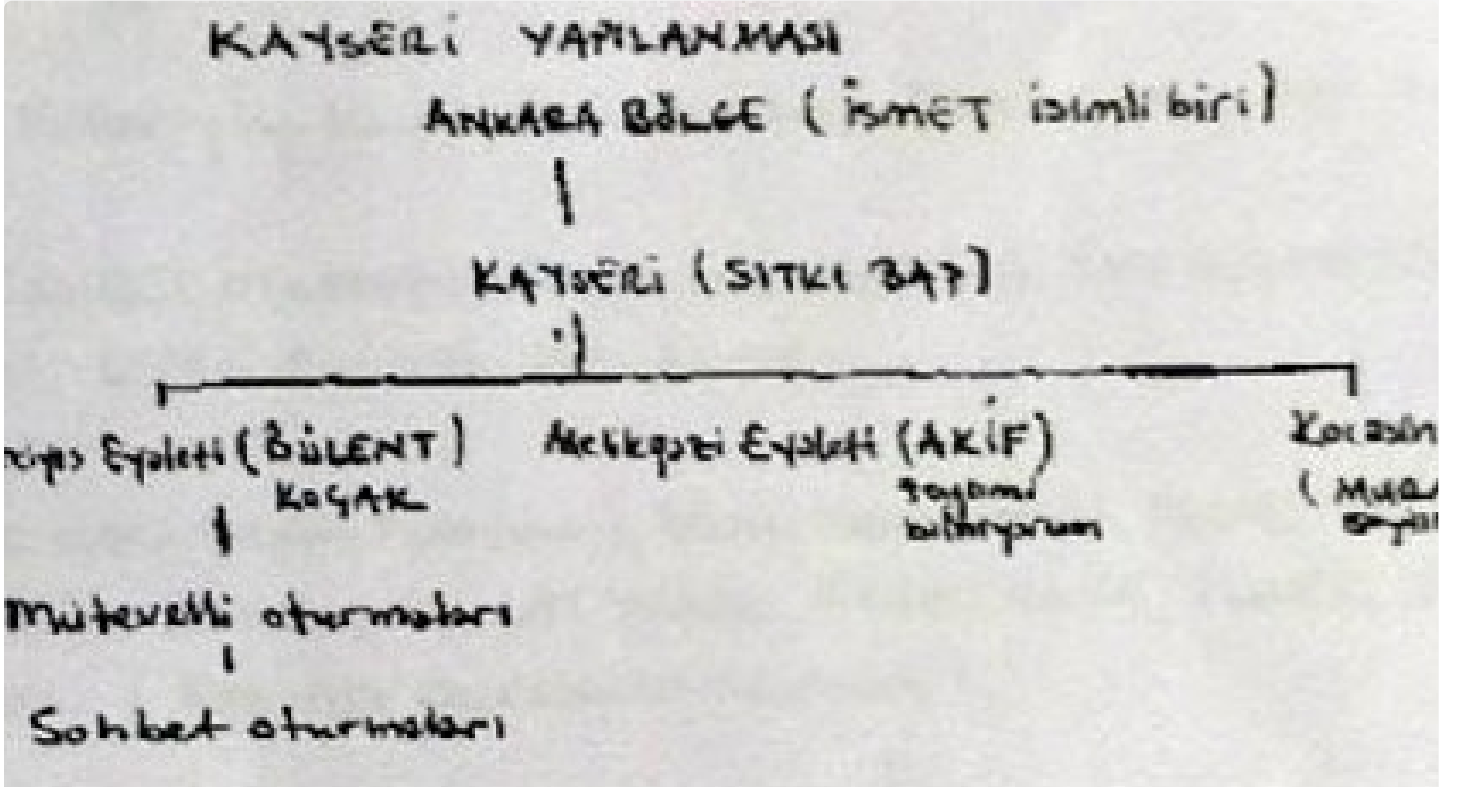 KAYSERİ YAPILANMASI
ANKARA BÖLGE (İSMET isimli biri)
KAYSERİ (SITKI BAŞ)
Eyaleti (BÜLENT) Melikgazi Eyaleti (AKİF) Kocasin
KOÇAK bilmiyorum
Mütevelli oturmaları
Sohbet oturmaları